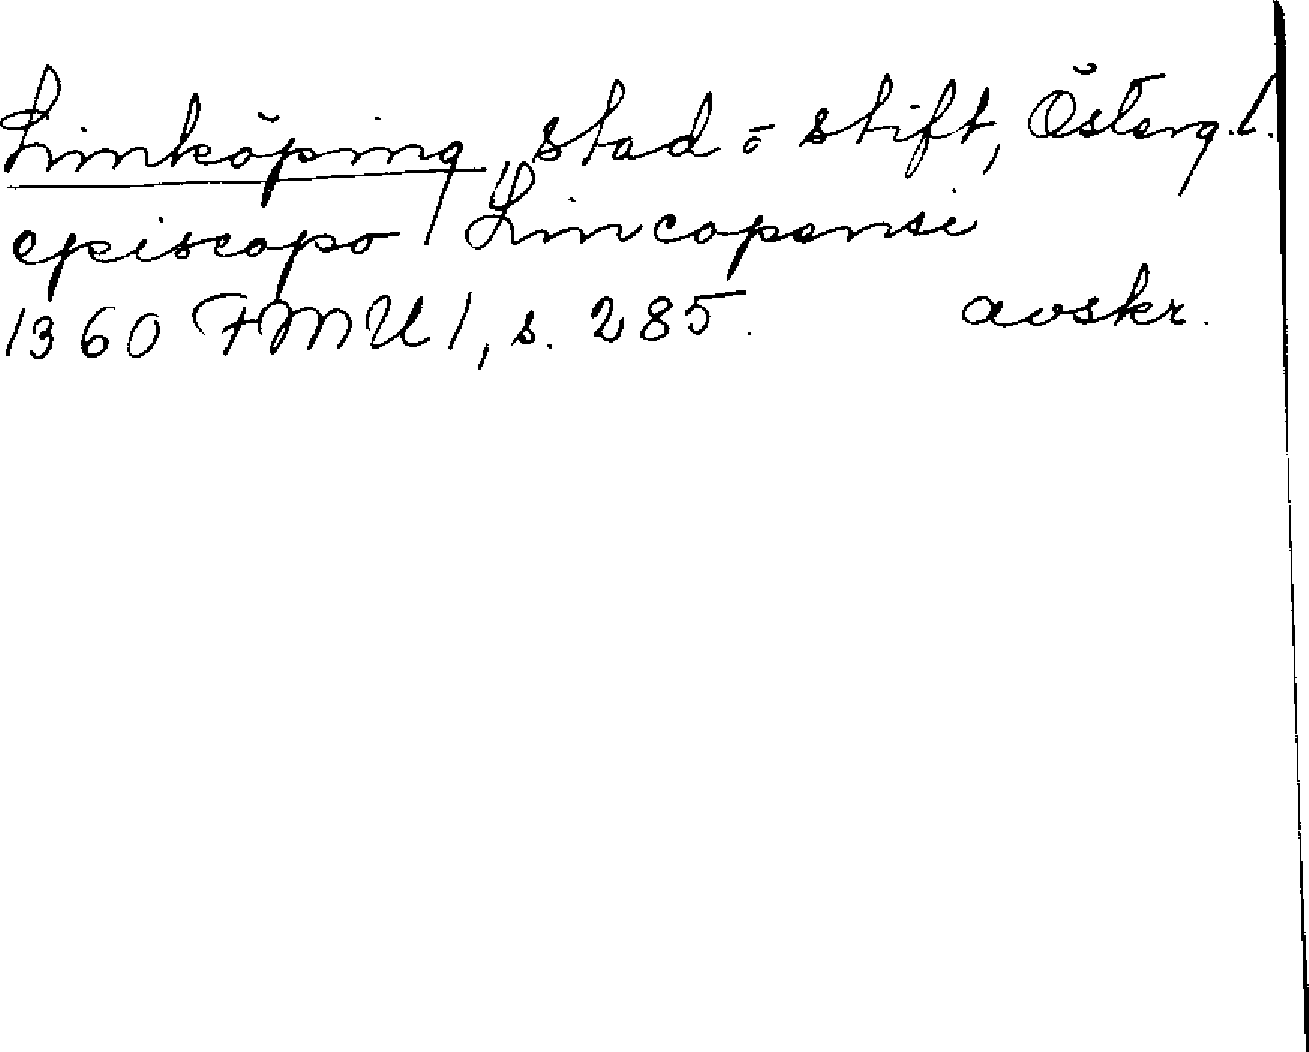 Linköping, stad o stift, Österg.l.
episcopo Lincopensi
1360 FMU 1, s. 285. avskr.